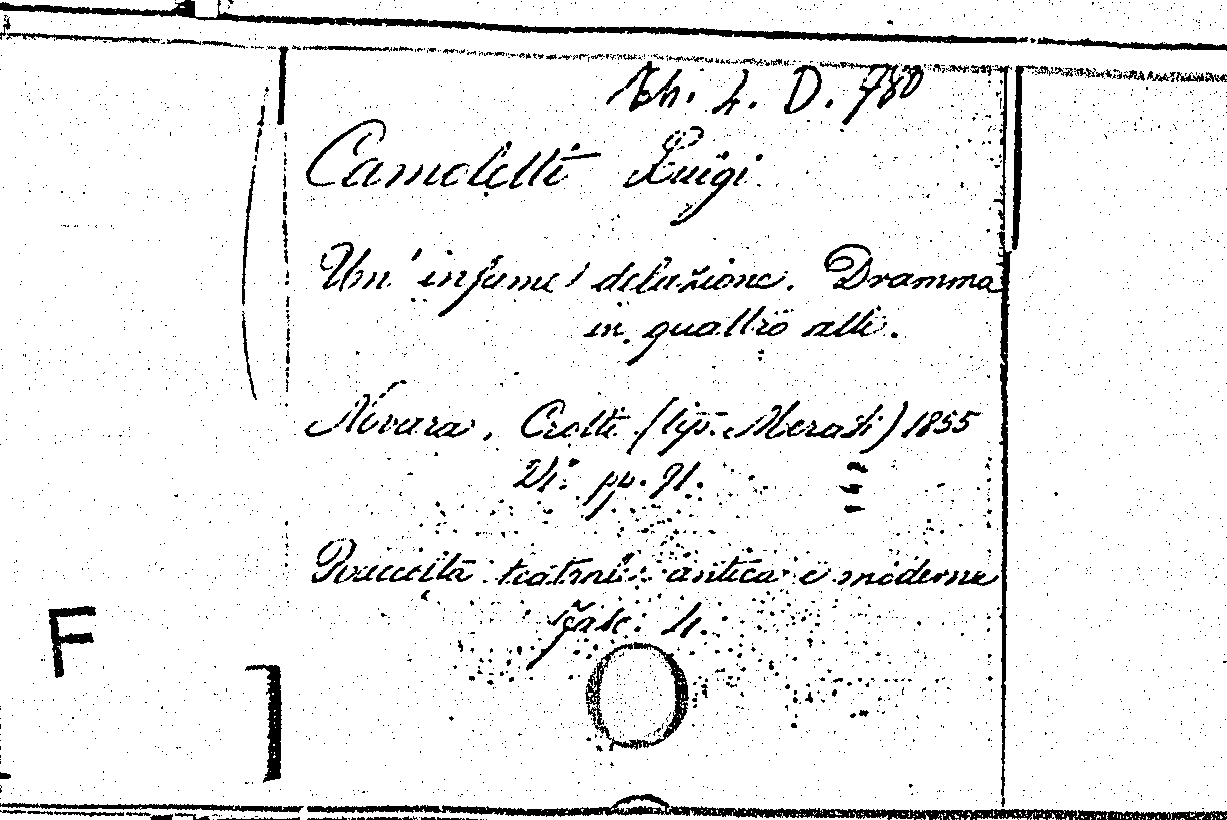 Th. 4. D. 780
Camoletti Luigi
Un' infame delazione. Dramma
in quattro atti.
Novara, Crotti (tip. Merati) 1855
24° pp. 91.
Raccolta teatrale antica e moderna
Fasc. 4.
F